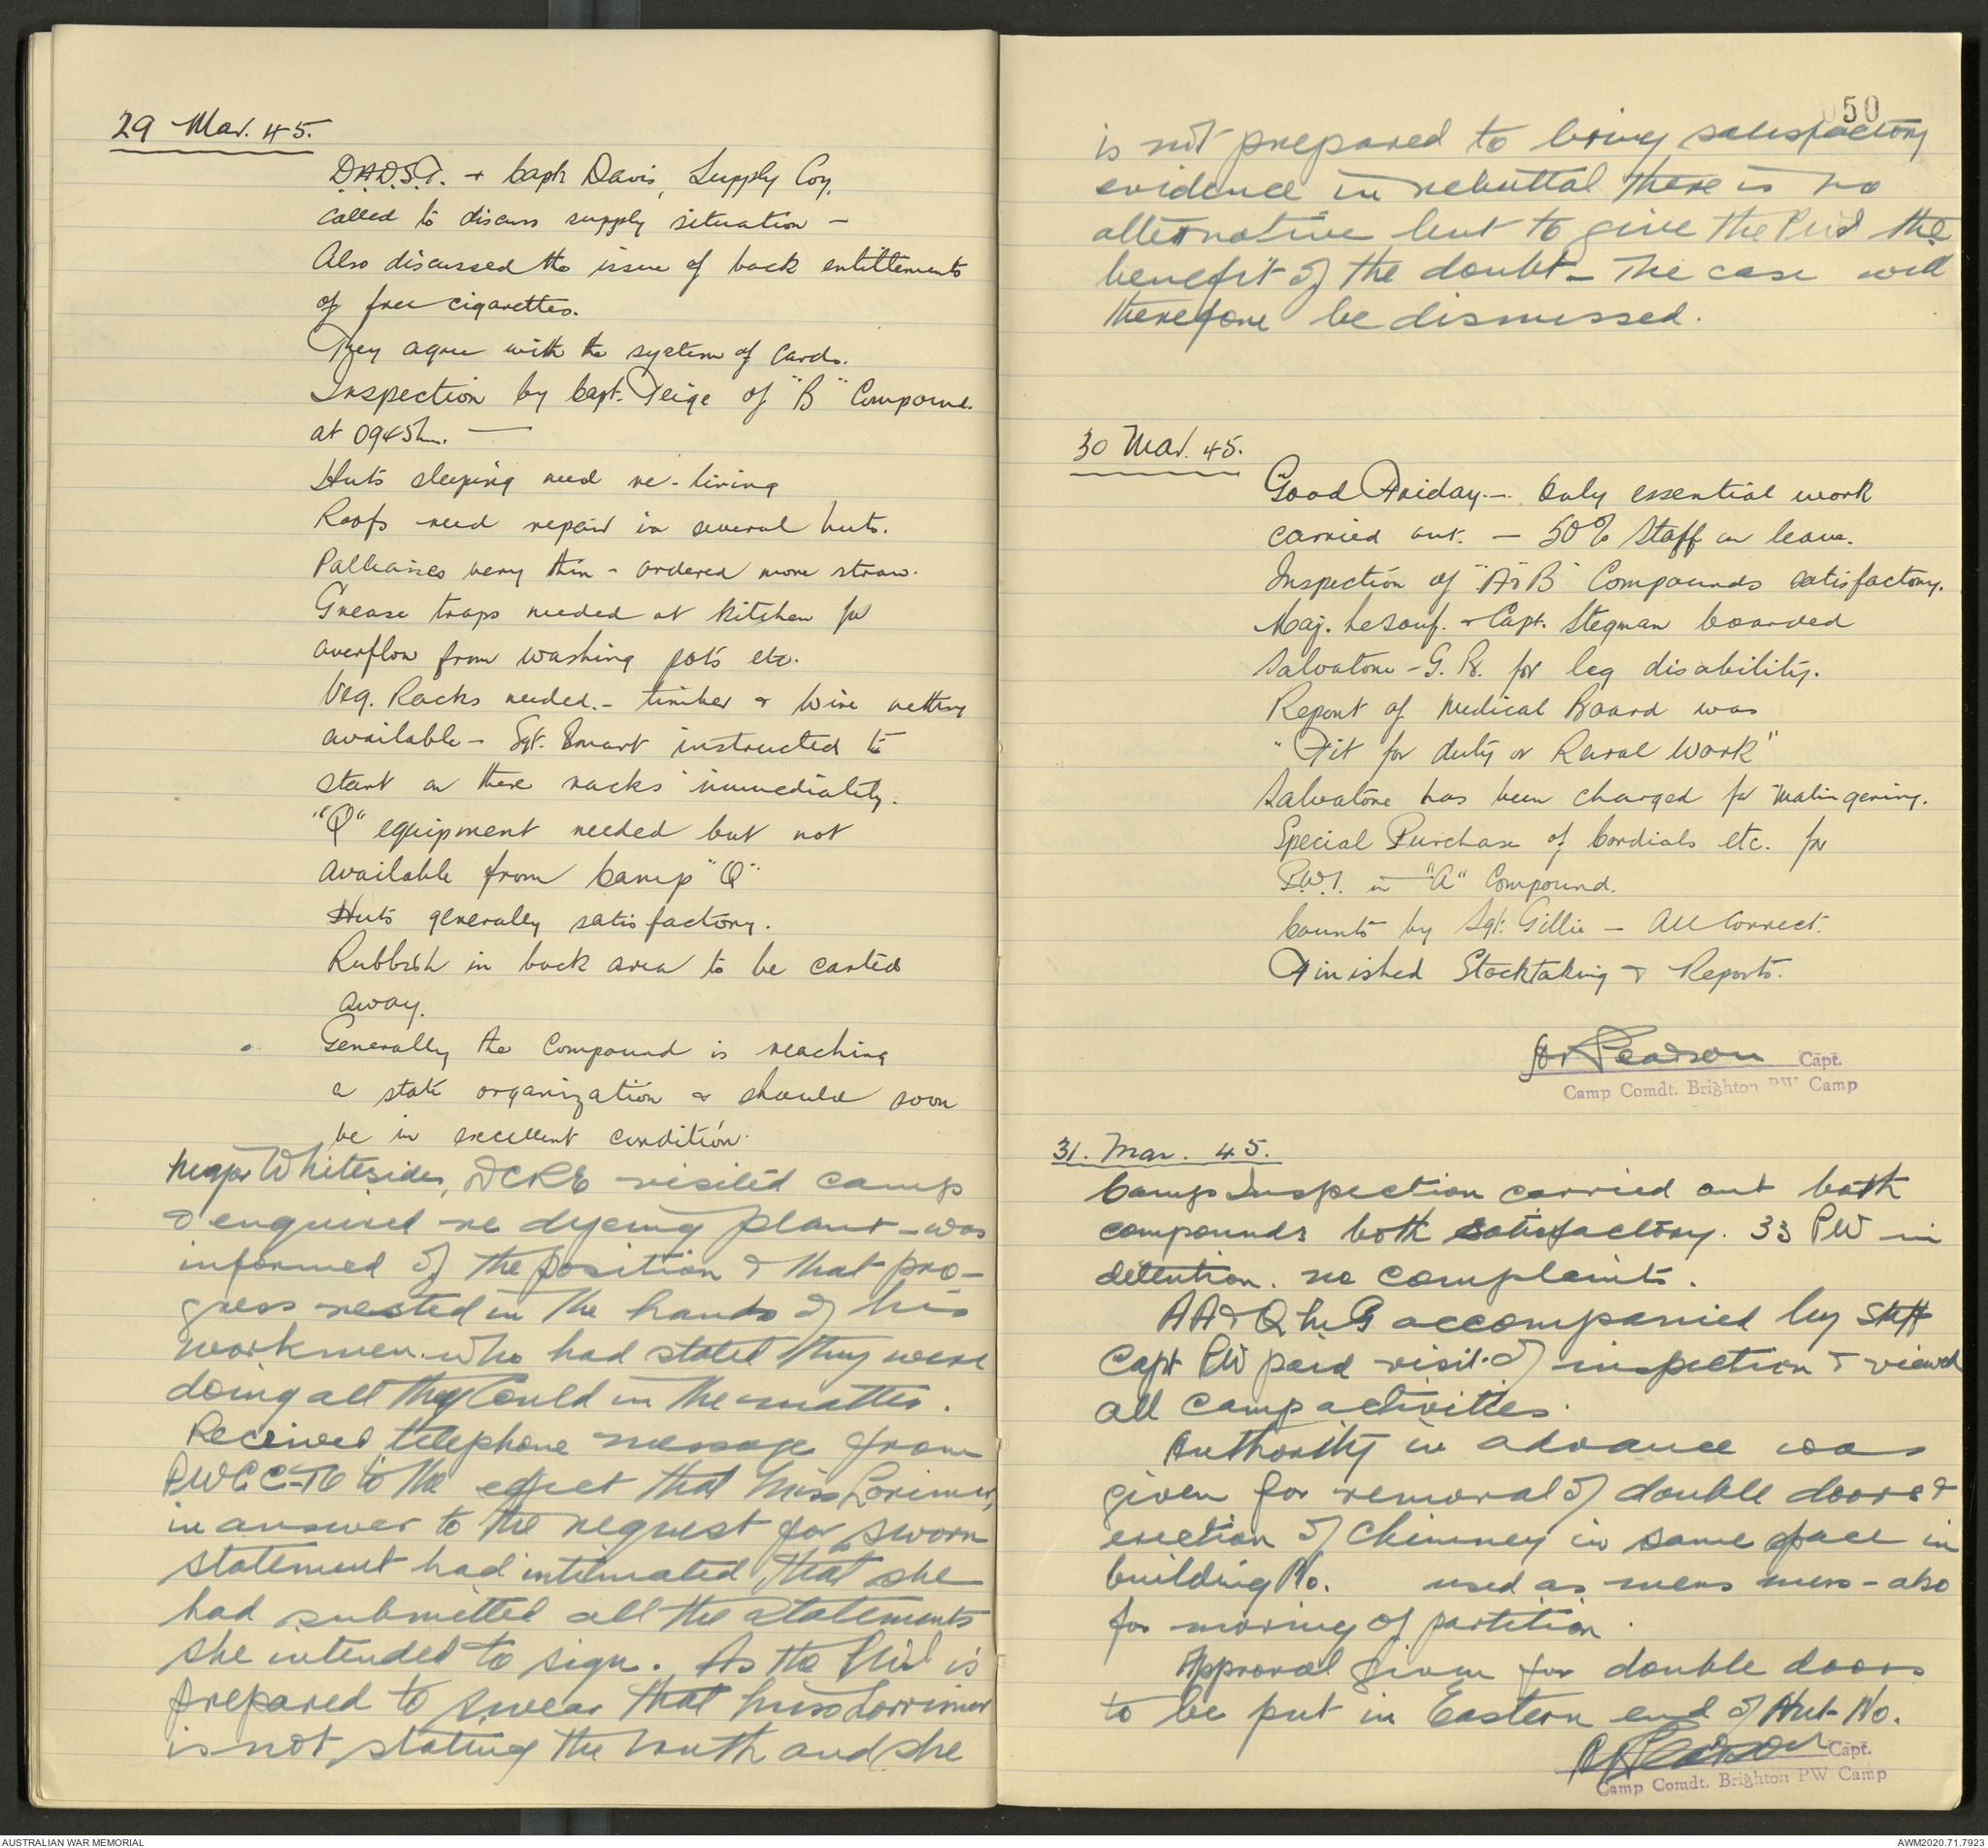 29 Mar. 45.
D.A.D.S.T. + Capt Davis, Supply Coy.
called to discuss supply situation -
Also discussed the issue of back entittlements
of free cigarettes.
They agree with the system of cards.
Inspection by Capt. Teige of "B" Compound
at 0945 hrs. —
Huts sleeping need re-lining
Roofs need repair in several huts.
Palliasses very thin - ordered more straw.
Grease traps needed at kitchen for
overflow from washing pots etc.
Veg. Racks needed. - timber & wire netting
available - Sgt. Smart instructed to
start on these racks immediately.
"Q" equipment needed but not
available from Camp "Q"
Huts generally satisfactory.
Rubbish in back area to be carted
away.
Generally the Compound is reaching
a state organization & should soon
be in excellent condition.
Major Whitesides, DCRE visited camp
& enquired re dyeing plant - was
informed of the position & that pro-
gress rested in the hands of his
workmen who had stated they were
doing all they could in the matter.
Received telephone message from
PWCC-T6 to the effect that Miss Lorimer,
in answer to the request for sworn
statement had intimated that she
had submitted all the statements
she intended to sign. As the PW is
prepared to swear that Miss Lorrimer
is not stating the truth and she
50
is not prepared to bring satisfactory
evidence in rebuttal there is no
alternative but to give the the
benefit of the doubt - The case will
therefore be dismissed.
30 Mar. 45.
Good Friday. - Only essential work
carried out. - 50% Staff on leave.
Inspection of "A & B" Compounds satisfactory.
Maj. LeSouf. & Capt. Stegman boarded
Salvatore - G. B. for leg disability.
Report of Medical Board was
"Fit for duty or Rural Work"
Salvatore has been charged for malingering.
Special Purchase of Cordials etc. for
P.W.I. in "A" Compound.
Counts by Sgt. Gillie - All Correct.
Finished Stocktaking & Reports.
Pearson Capt.
Camp Comdt. Brighton PW Camp
31. Mar. 45.
Camp Inspection carried out both
compounds both satisfactory. 33 PW in
detention. no complaints.
AA&QMG accompanied by Staff
Capt PW paid visit of inspection & viewed
all camp activities.
Authority in advance was
given for removal of double doors &
erection of chimney in same place in
building No. used as mens mess - also
for moving of partition.
Approval given for double doors
to be put in Eastern end of Hut No.
Pearson Capt.
Camp Comdt. Brighton PW Camp
AUSTRALIAN WAR MEMORIAL
AWM2020.71.7923